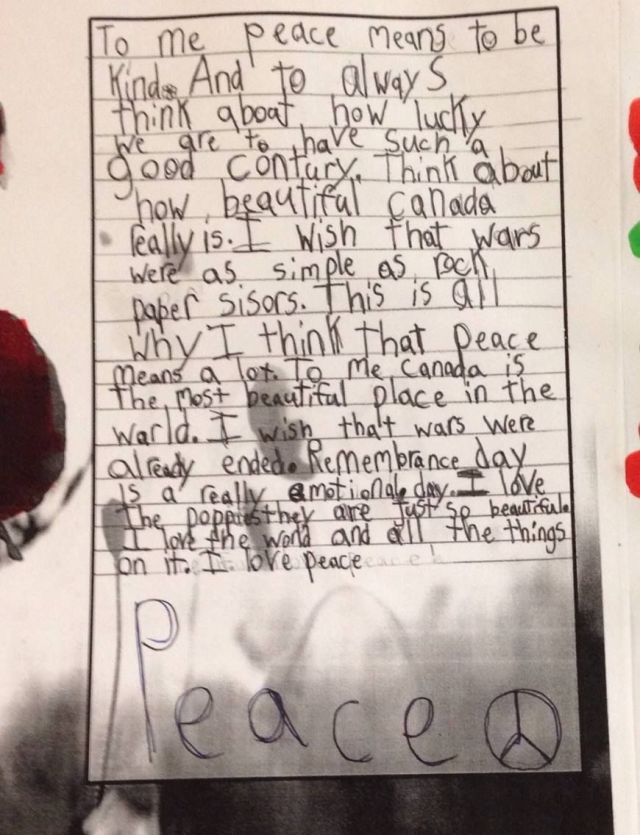 To me peace means to be
kind. And to always
think aboat how lucky
we are to have such a
good contury. Think about
how beautiful canada
really is. I wish that wars
were as simple as rock,
paper sisors. This is all
why I think that peace
means a lot. To me canada is
the most beautiful place in the
warld. I wish that wars were
already ended. Remembrance day
is a really emotional day. I love
the poppies they are just so beautiful.
I love the world and all the things
on it. I love peace
Peace